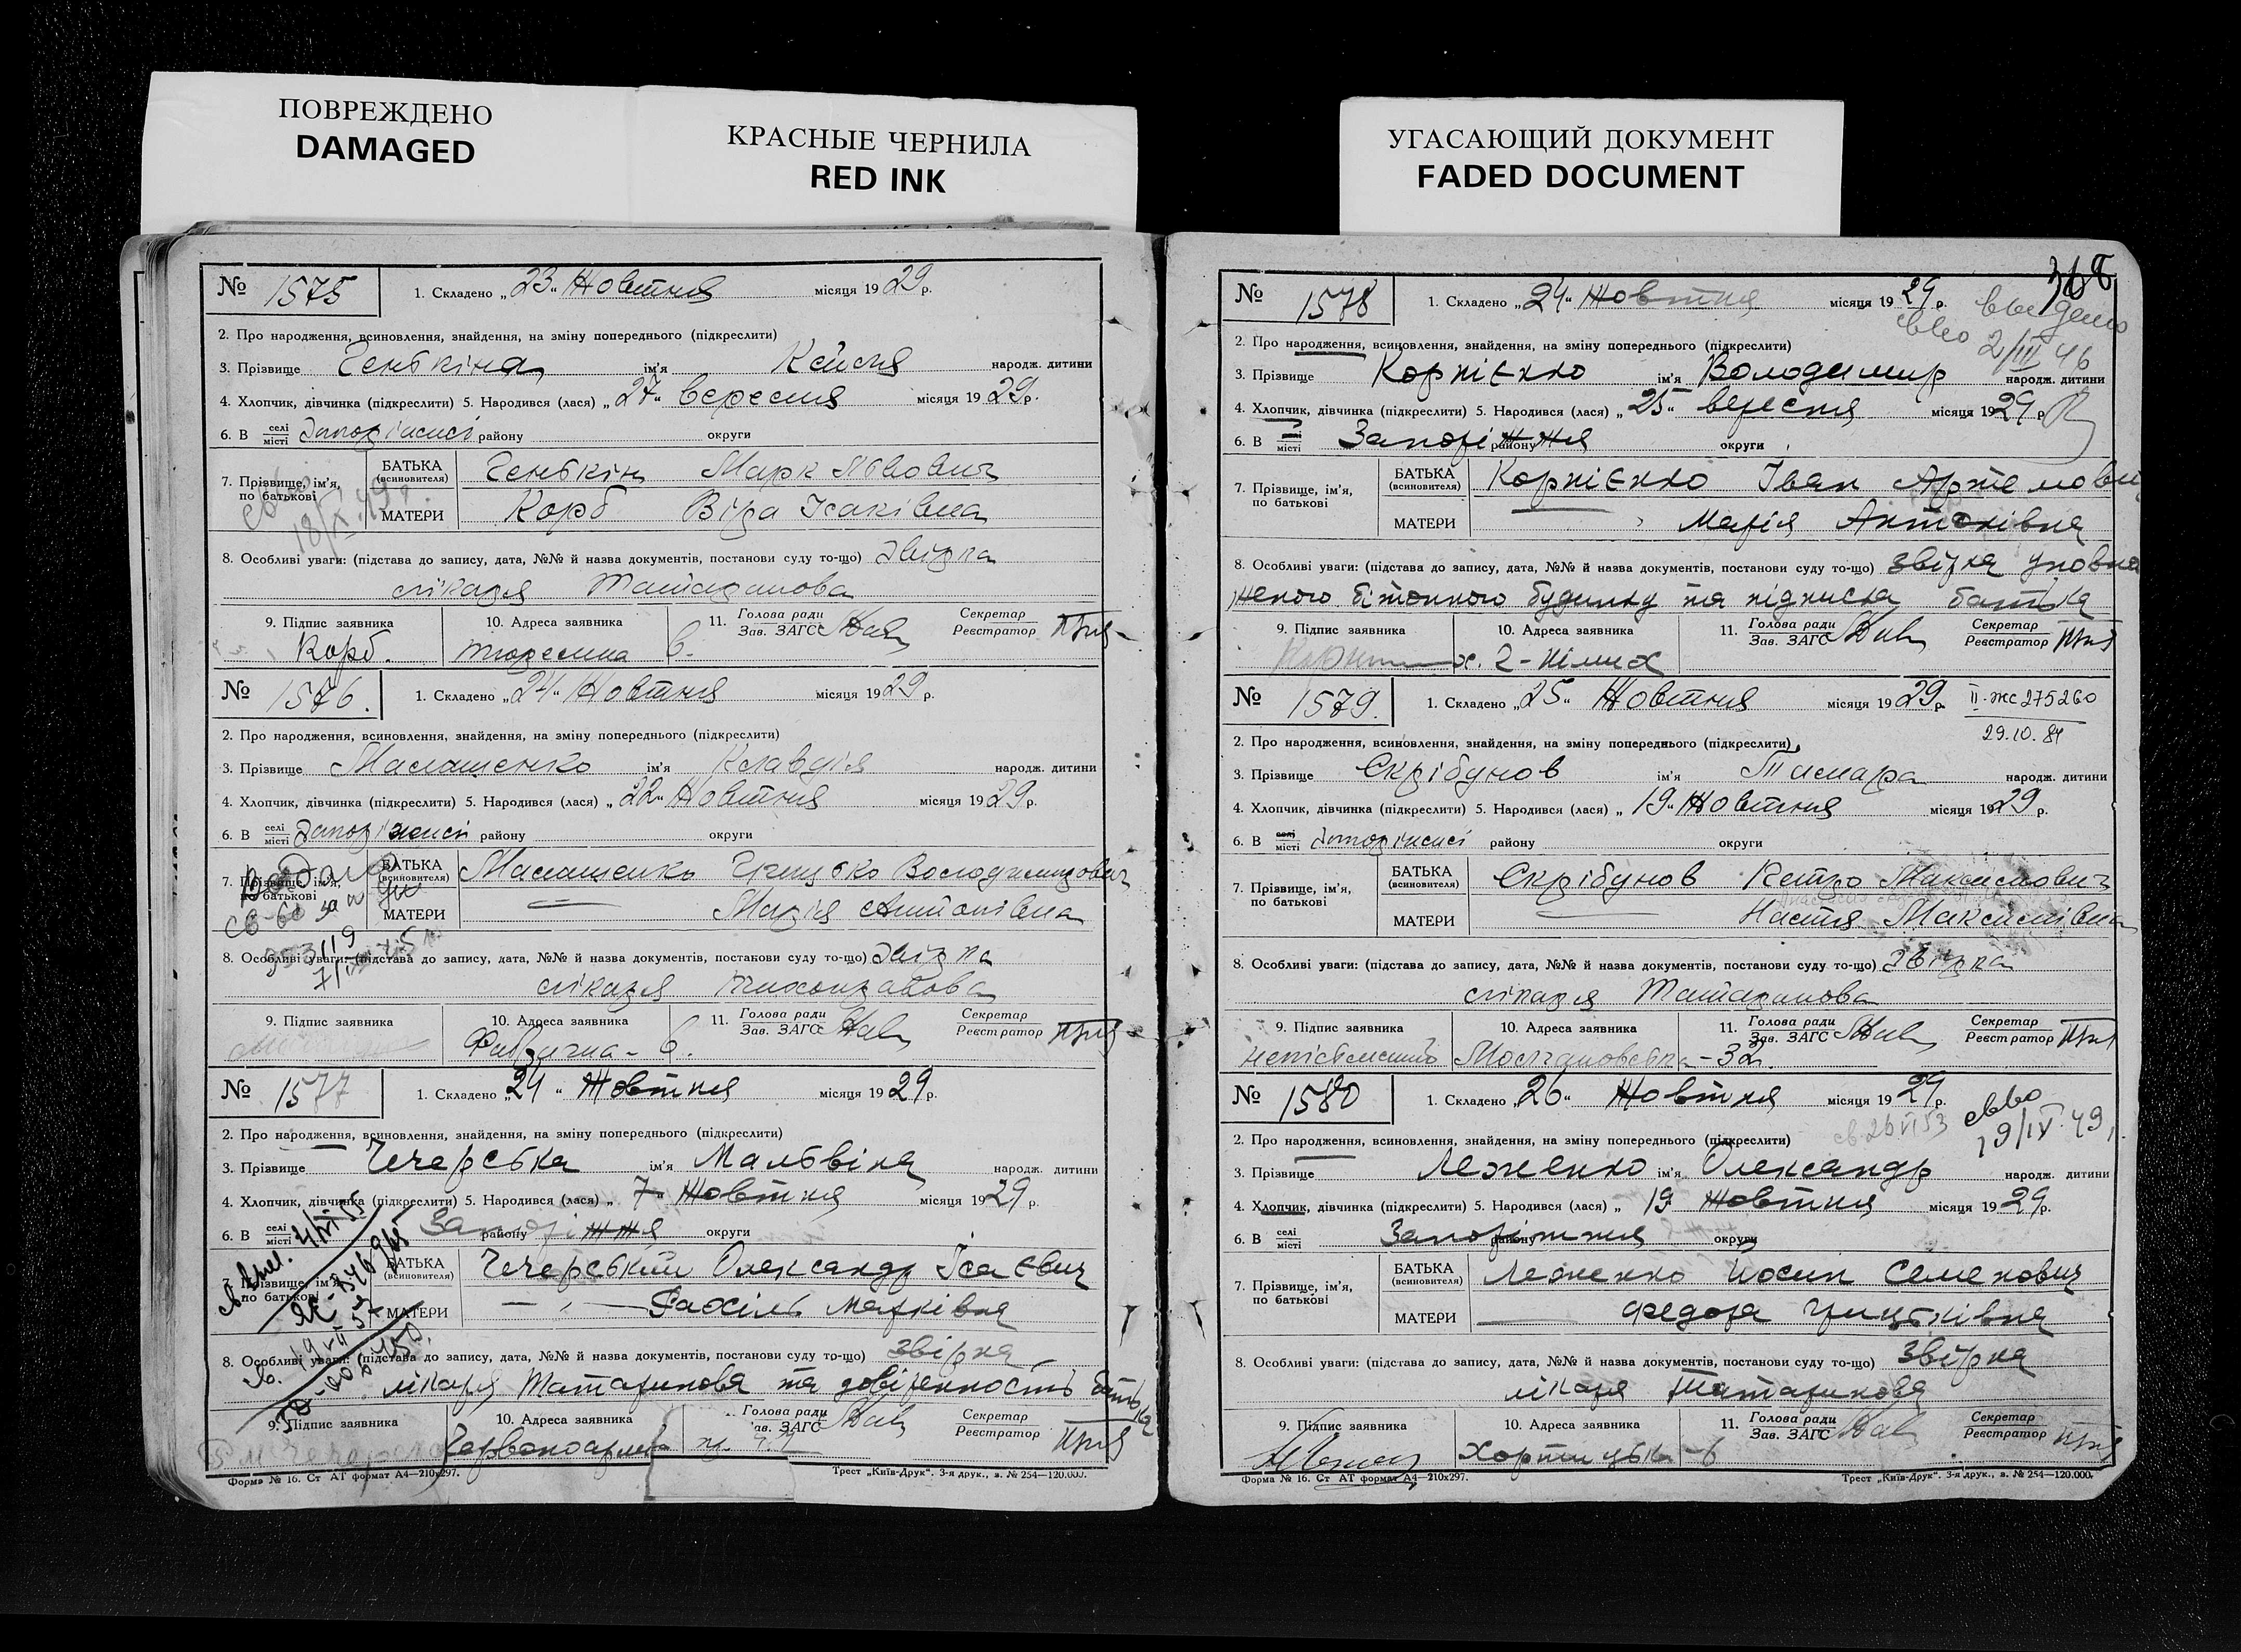 ПОВРЕЖДЕНО
DAMAGED
КРАСНЫЕ ЧЕРНИЛА
RED INK
УГАСАЮЩИЙ ДОКУМЕНТ
FADED DOCUMENT
№ 1575 1. Складено „23“ Жовтня місяця 1929 р.
2. Про народження, всиновлення, знайдення, на зміну попереднього (підкреслити)
3. Прізвище Генькіна ім'я народж. дитини
4. Хлопчик, дівчинка (підкреслити) 5. Народився (лася) „27“ вересня місяця 1929 р.
6. В селі місті Запоріжжі району округи
7. Прізвище, ім'я, по батькові БАТЬКА (всиновителя) Генькін Марк Львович
МАТЕРИ Корб Віра Ісаківна
8. Особливі уваги: (підстава до запису, дата, №№ й назва документів, постанови суду то-що) Звірка
лікаря Татаринова
9. Підпис заявника 10. Адреса заявника 11. Голова ради Зав. ЗАГС Секретар Реєстратор
Корб. 6.
№ 1576. 1. Складено „24“ Жовтня місяця 1929 р.
2. Про народження, всиновлення, знайдення, на зміну попереднього (підкреслити)
3. Прізвище Малашенко ім'я Клавдія народж. дитини
4. Хлопчик, дівчинка (підкреслити) 5. Народився (лася) „22“ Жовтня місяця 1929 р.
6. В селі місті Запоріжжі району округи
7. Прізвище, ім'я, по батькові БАТЬКА (всиновителя) Малашенко Грицько Володимирович
МАТЕРИ Марія Антонівна
8. Особливі уваги: (підстава до запису, дата, №№ й назва документів, постанови суду то-що) Звірка
лікаря
9. Підпис заявника 10. Адреса заявника 11. Голова ради Зав. ЗАГС Секретар Реєстратор
Фабрична - 6.
№ 1577 1. Складено „24“ Жовтня місяця 1929 р.
2. Про народження, всиновлення, знайдення, на зміну попереднього (підкреслити)
3. Прізвище Чечерська ім'я Мальвіна народж. дитини
4. Хлопчик, дівчинка (підкреслити) 5. Народився (лася) „7“ Жовтня місяця 1929 р.
6. В селі місті Запоріжжя району округи
7. Прізвище, ім'я, по батькові БАТЬКА (всиновителя) Чечерський Олександр Ісаєвич
МАТЕРИ — „ — Рахіль Марківна
8. Особливі уваги: (підстава до запису, дата, №№ й назва документів, постанови суду то-що) звірка
лікаря Татаринова та довіренность батька
9. Підпис заявника 10. Адреса заявника Голова ради Зав. ЗАГС Секретар Реєстратор
Форма № 16. Ст АТ формат А4—210х297. Трест „Київ-Друк“. 3-я друк., з. № 254—120.000.
368
№ 1578 1. Складено „24“ Жовтня місяця 1929 р.
2/III 46
2. Про народження, всиновлення, знайдення, на зміну попереднього (підкреслити)
3. Прізвище Корнієнко ім'я Володимир народж. дитини
4. Хлопчик, дівчинка (підкреслити) 5. Народився (лася) „25“ вересня місяця 1929 р.
6. В селі місті Запоріжжя району округи
7. Прізвище, ім'я, по батькові БАТЬКА (всиновителя) Корнієнко Іван Артемович
МАТЕРИ Марія Антонівна
8. Особливі уваги: (підстава до запису, дата, №№ й назва документів, постанови суду то-що) звірка уповна
женого бітонного будинку та підписка батька
9. Підпис заявника 10. Адреса заявника 11. Голова ради Зав. ЗАГС Секретар Реєстратор
№ 1579. 1. Складено „25“ Жовтня місяця 1929 р. II-жс 275260
29.10.84
2. Про народження, всиновлення, знайдення, на зміну попереднього (підкреслити)
3. Прізвище Скрібунов ім'я Тамара народж. дитини
4. Хлопчик, дівчинка (підкреслити) 5. Народився (лася) „19“ Жовтня місяця 1929 р.
6. В селі місті Запоріжжі району округи
7. Прізвище, ім'я, по батькові БАТЬКА (всиновителя) Скрібунов Петро Максимович
МАТЕРИ Настя Максимівна
8. Особливі уваги: (підстава до запису, дата, №№ й назва документів, постанови суду то-що) Звірка
лікаря Татаринова
9. Підпис заявника 10. Адреса заявника 11. Голова ради Зав. ЗАГС Секретар Реєстратор
неписьменний - 32.
№ 1580 1. Складено „26“ Жовтня місяця 1929 р.
19/IV 49
2. Про народження, всиновлення, знайдення, на зміну попереднього (підкреслити)
3. Прізвище Леженко ім'я Олександр народж. дитини
4. Хлопчик, дівчинка (підкреслити) 5. Народився (лася) „19 Жовтня місяця 1929 р.
6. В селі місті Запоріжжя району округи
7. Прізвище, ім'я, по батькові БАТЬКА (всиновителя) Леженко Йосип Семенович
МАТЕРИ Федора Грицьківна
8. Особливі уваги: (підстава до запису, дата, №№ й назва документів, постанови суду то-що) Звірка
лікаря Татаринова
9. Підпис заявника 10. Адреса заявника 11. Голова ради Зав. ЗАГС Секретар Реєстратор
Хортицька - 6
Форма № 16. Ст АТ формат А4—210х297. Трест „Київ-Друк“. 3-я друк., з. № 254—120.000.